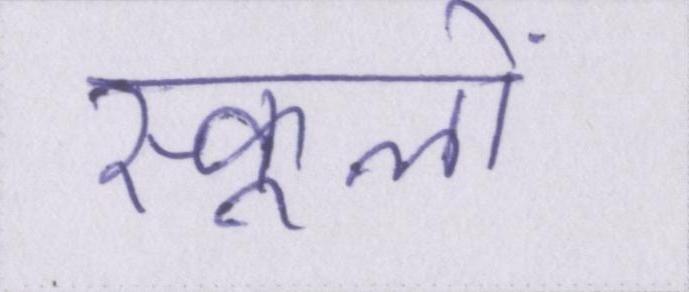 स्कूलों